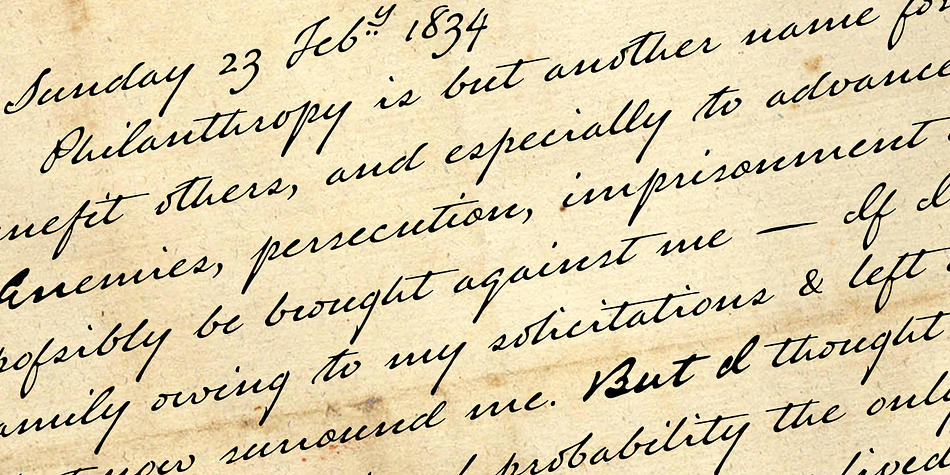 Sunday 23 Feby 1834
Philanthropy is but another name for
nefit others, and especially to advance
Enemies, persecution, imprisonment
possibly be brought against me — If I
amily owing to my solicitations & left
now surround me. But I thought
probability the only
lived